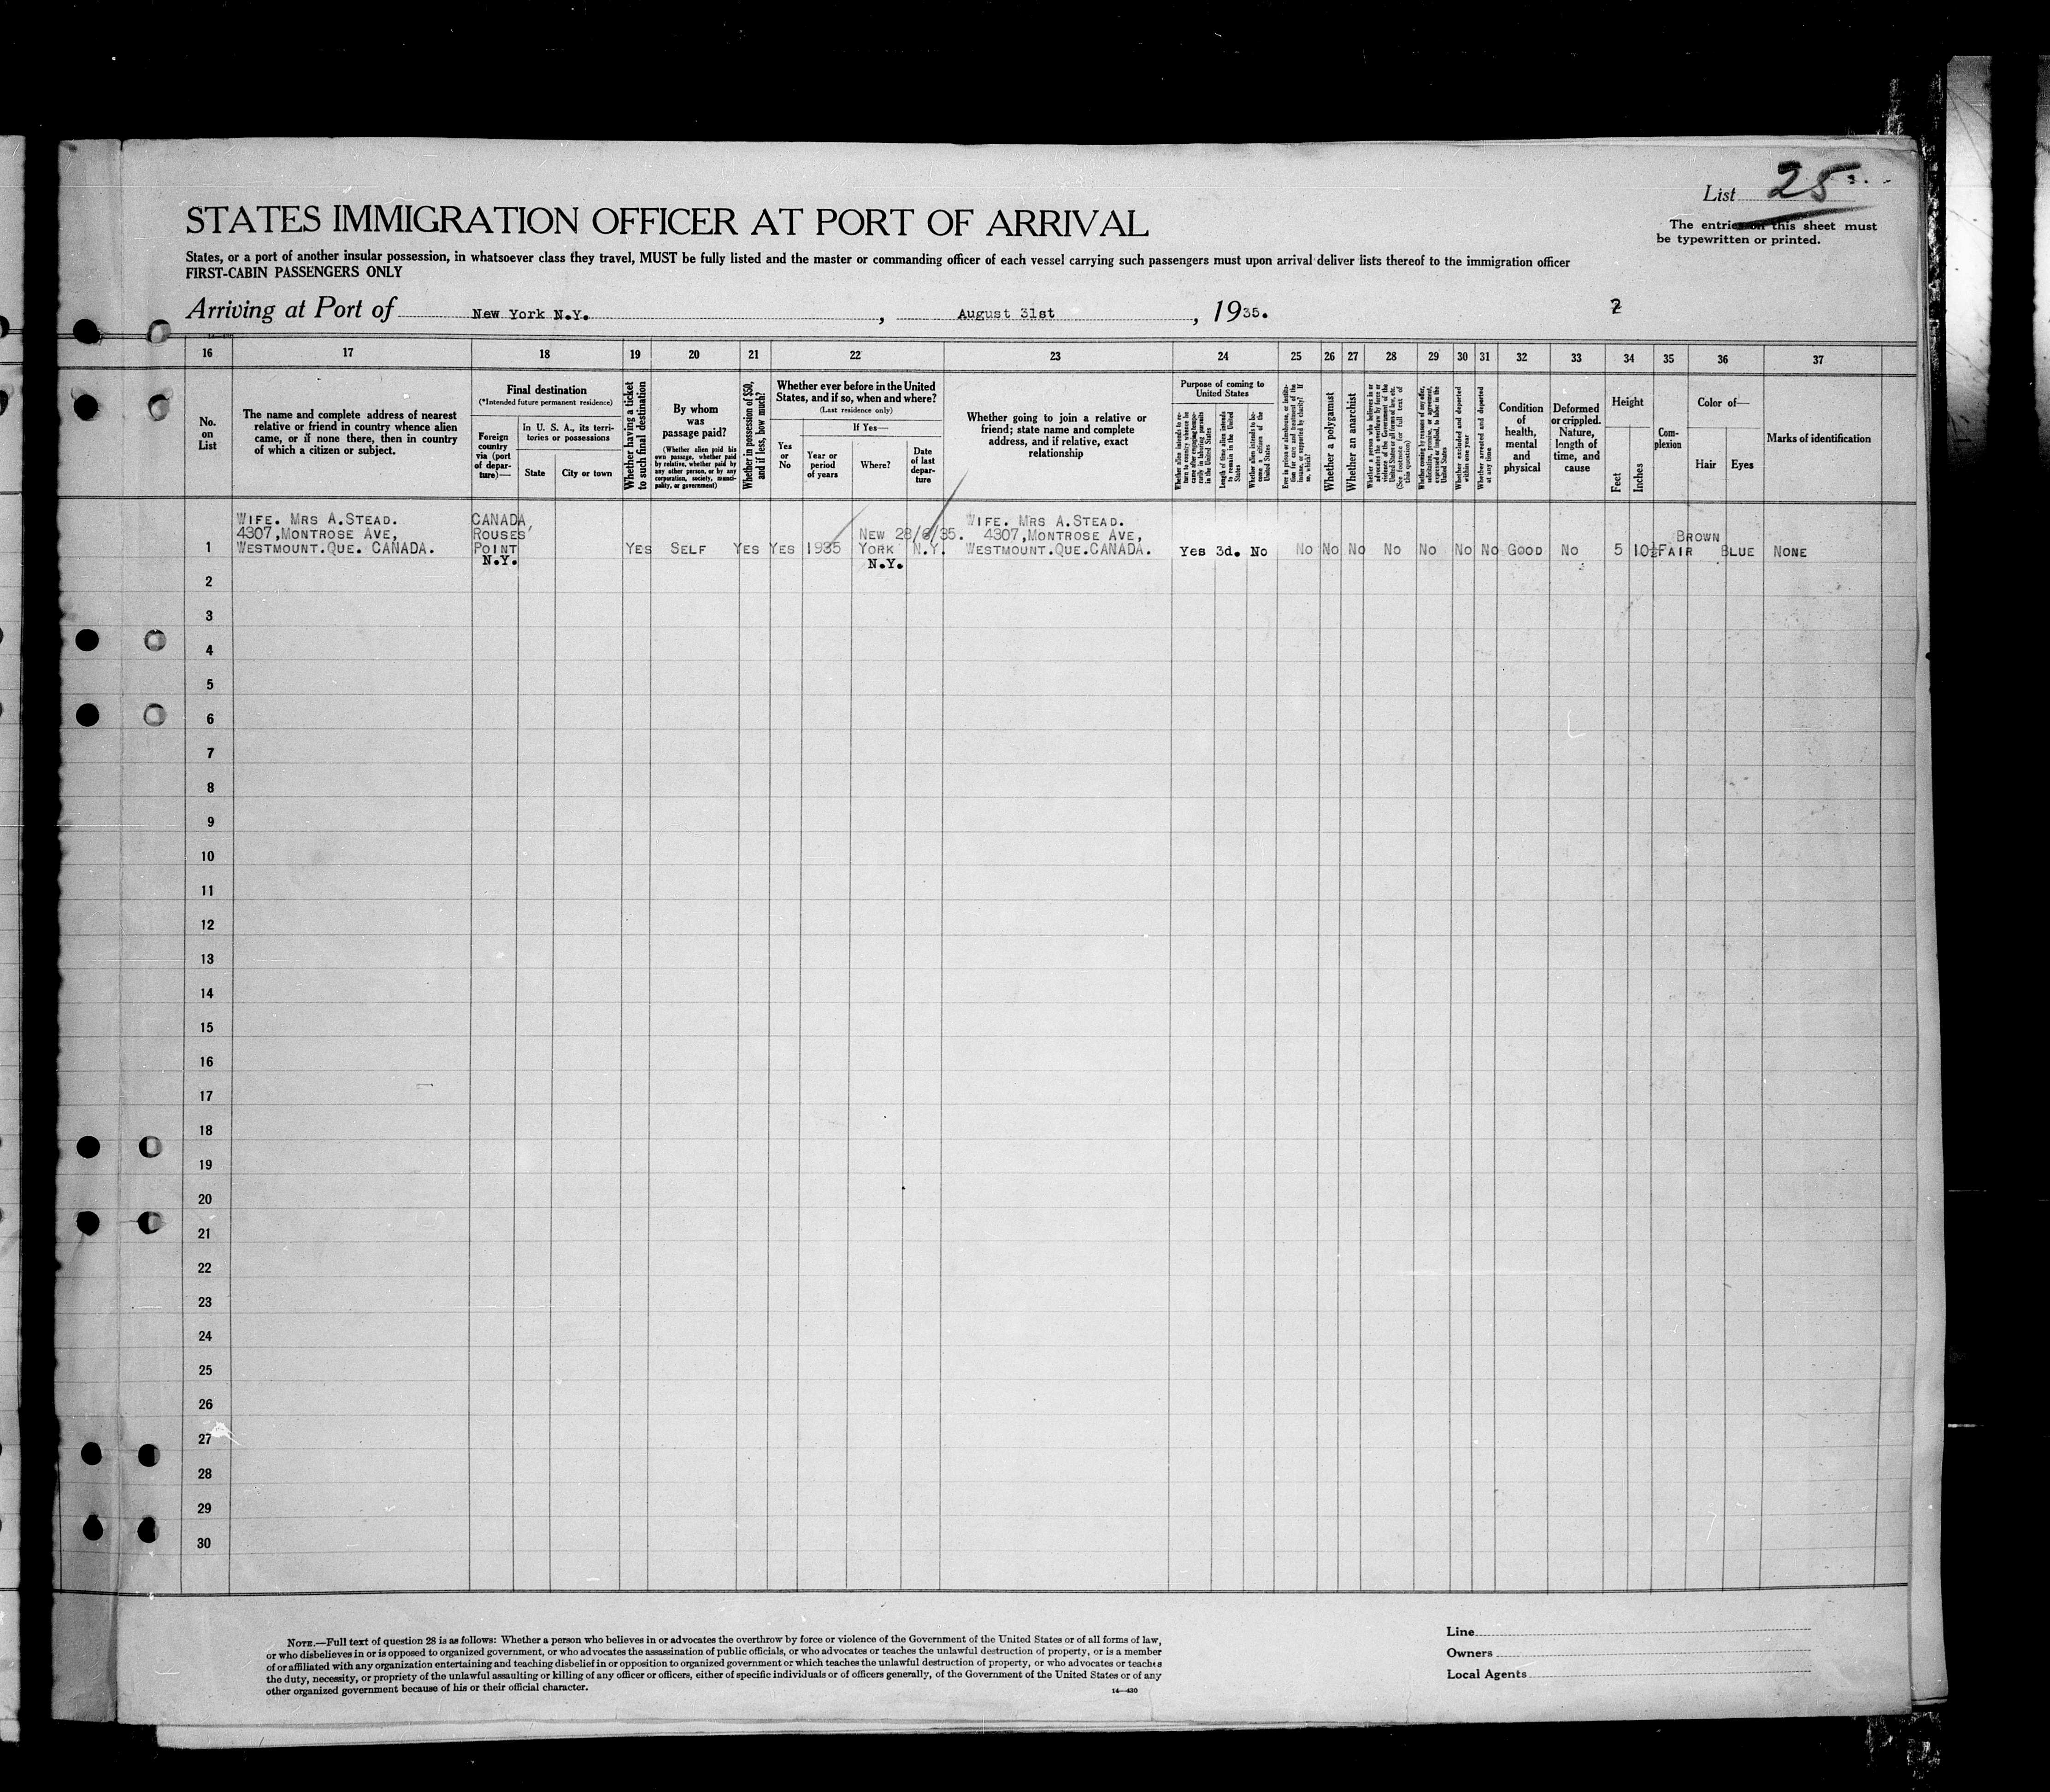 List 25
The entries on this sheet must
be typewritten or printed.
STATES IMMIGRATION OFFICER AT PORT OF ARRIVAL
States, or a port of another insular possession, in whatsoever class they travel, MUST be fully listed and the master or commanding officer of each vessel carrying such passengers must upon arrival deliver lists thereof to the immigration officer
FIRST-CABIN PASSENGERS ONLY
Arriving at Port of New York N.Y. , August 31st , 1935.
2
16 17 18 19 20 21 22 23 24 25 26 27 28 29 30 31 32 33 34 35 36 37
No.
on
List
The name and complete address of nearest
relative or friend in country whence alien
came, or if none there, then in country
of which a citizen or subject.
Final destination
(*Intended future permanent residence)
Foreign
country
via (port
of depar-
ture)—
In U. S. A., its terri-
tories or possessions
State
City or town
Whether having a ticket
to such final destination
By whom
was
passage paid?
(Whether alien paid his
own passage, whether paid
by relative, whether paid by
any other person, or by any
corporation, society, munici-
pality, or government)
Whether in possession of $50,
and if less, how much?
Whether ever before in the United
States, and if so, when and where?
(Last residence only)
Yes
or
No
If Yes—
Year or
period
of years
Where?
Date
of last
depar-
ture
Whether going to join a relative or
friend; state name and complete
address, and if relative, exact
relationship
Purpose of coming to
United States
Whether alien intends to re-
turn to country whence he
came after engaging tempo-
rarily in laboring pursuits
in the United States
Length of time alien intends
to remain in the United
States
Whether alien intends to be-
come a citizen of the
United States
Ever in prison or almshouse, or institu-
tion for care and treatment of the
insane, or supported by charity? If
so, which?
Whether a polygamist
Whether an anarchist
Whether a person who believes in or
advocates the overthrow by force or
violence of the Government of the
United States or all forms of law, etc.
(See footnote for full text of
this question)
Whether coming by reason of any offer,
solicitation, promise, or agreement,
expressed or implied, to labor in the
United States
Whether excluded and deported
within one year
Whether arrested and deported
at any time
Condition
of
health,
mental
and
physical
Deformed
or crippled.
Nature,
length of
time, and
cause
Height
Feet
Inches
Com-
plexion
Color of—
Hair
Eyes
Marks of identification
WIFE. MRS A.STEAD. CANADA WIFE. MRS A.STEAD.
4307,MONTROSE AVE, ROUSES' NEW 28/6/35. 4307,MONTROSE AVE, BROWN
1 WESTMOUNT.QUE. CANADA. POINT YES SELF YES YES 1935 YORK N.Y. WESTMOUNT.QUE.CANADA. Yes 3d. No No No No No No No No GOOD No 5 10½ FAIR BLUE NONE
N.Y. N.Y.
2
3
4
5
6
7
8
9
10
11
12
13
14
15
16
17
18
19
20
21
22
23
24
25
26
27
28
29
30
NOTE.—Full text of question 28 is as follows: Whether a person who believes in or advocates the overthrow by force or violence of the Government of the United States or of all forms of law,
or who disbelieves in or is opposed to organized government, or who advocates the assassination of public officials, or who advocates or teaches the unlawful destruction of property, or is a member
of or affiliated with any organization entertaining and teaching disbelief in or opposition to organized government or which teaches the unlawful destruction of property, or who advocates or teaches
the duty, necessity, or propriety of the unlawful assaulting or killing of any officer or officers, either of specific individuals or of officers generally, of the Government of the United States or of any
other organized government because of his or their official character.
14—430
Line
Owners
Local Agents